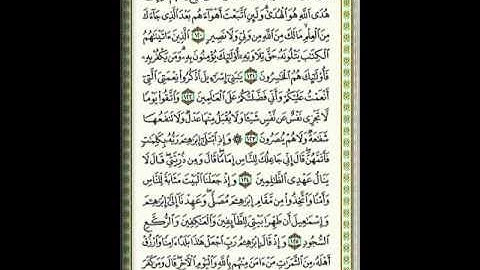 هُدَى ٱللَّهِ هُوَ ٱلْهُدَىٰ ۗ وَلَئِنِ ٱتَّبَعْتَ أَهْوَآءَهُم بَعْدَ ٱلَّذِى جَآءَكَ
مِنَ ٱلْعِلْمِ ۙ مَا لَكَ مِنَ ٱللَّهِ مِن وَلِىٍّ وَلَا نَصِيرٍ ﴿١٢٠﴾ ٱلَّذِينَ ءَاتَيْنَٰهُمُ
ٱلْكِتَٰبَ يَتْلُونَهُۥ حَقَّ تِلَاوَتِهِۦٓ أُو۟لَٰٓئِكَ يُؤْمِنُونَ بِهِۦ ۗ وَمَن يَكْفُرْ بِهِۦ
فَأُو۟لَٰٓئِكَ هُمُ ٱلْخَٰسِرُونَ ﴿١٢١﴾ يَٰبَنِىٓ إِسْرَٰٓءِيلَ ٱذْكُرُوا۟ نِعْمَتِىَ ٱلَّتِىٓ
أَنْعَمْتُ عَلَيْكُمْ وَأَنِّى فَضَّلْتُكُمْ عَلَى ٱلْعَٰلَمِينَ ﴿١٢٢﴾ وَٱتَّقُوا۟ يَوْمًا
لَّا تَجْزِى نَفْسٌ عَن نَّفْسٍ شَيْـًٔا وَلَا يُقْبَلُ مِنْهَا عَدْلٌ وَلَا تَنفَعُهَا
شَفَٰعَةٌ وَلَا هُمْ يُنصَرُونَ ﴿١٢٣﴾ ۞ وَإِذِ ٱبْتَلَىٰٓ إِبْرَٰهِۦمَ رَبُّهُۥ بِكَلِمَٰتٍ
فَأَتَمَّهُنَّ ۖ قَالَ إِنِّى جَاعِلُكَ لِلنَّاسِ إِمَامًا ۖ قَالَ وَمِن ذُرِّيَّتِى ۖ قَالَ لَا
يَنَالُ عَهْدِى ٱلظَّٰلِمِينَ ﴿١٢٤﴾ وَإِذْ جَعَلْنَا ٱلْبَيْتَ مَثَابَةً لِّلنَّاسِ
وَأَمْنًا وَٱتَّخِذُوا۟ مِن مَّقَامِ إِبْرَٰهِۦمَ مُصَلًّى ۖ وَعَهِدْنَآ إِلَىٰٓ إِبْرَٰهِۦمَ
وَإِسْمَٰعِيلَ أَن طَهِّرَا بَيْتِىَ لِلطَّآئِفِينَ وَٱلْعَٰكِفِينَ وَٱلرُّكَّعِ
ٱلسُّجُودِ ﴿١٢٥﴾ وَإِذْ قَالَ إِبْرَٰهِۦمُ رَبِّ ٱجْعَلْ هَٰذَا بَلَدًا ءَامِنًا وَٱرْزُقْ
أَهْلَهُۥ مِنَ ٱلثَّمَرَٰتِ مَنْ ءَامَنَ مِنْهُم بِٱللَّهِ وَٱلْيَوْمِ ٱلْءَاخِرِ ۖ قَالَ وَمَن كَفَرَ